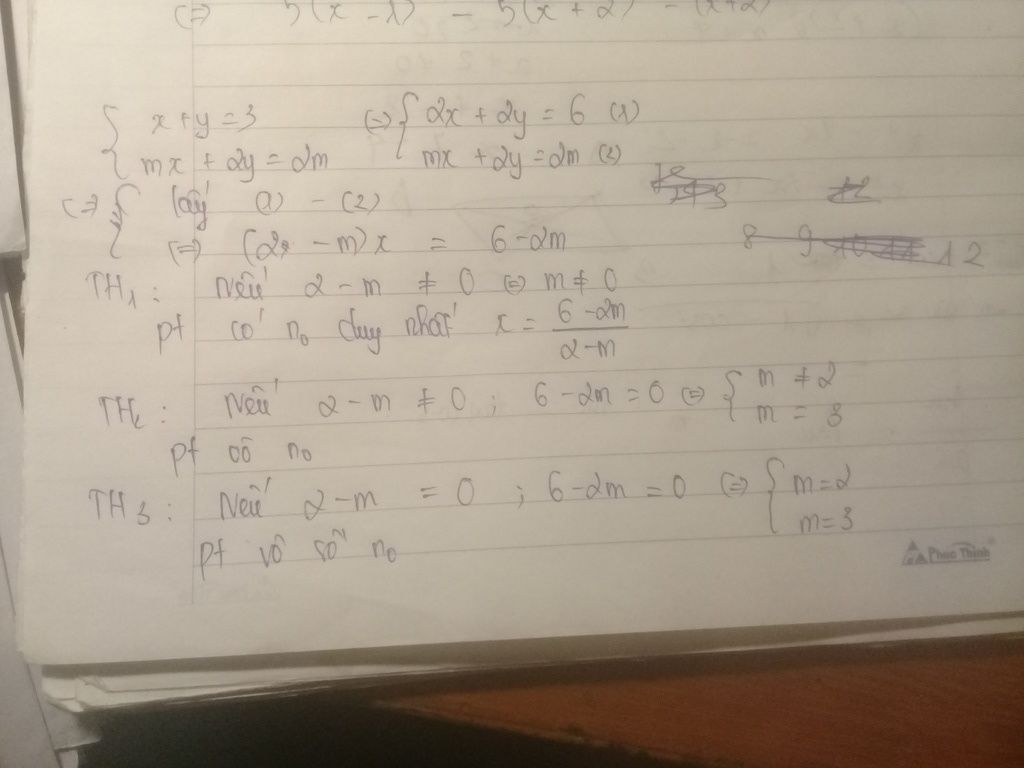 (=) 5(x - 1) - 5(x + 2) - (x+2)
{ x + y = 3 (=) { 2x + 2y = 6 (1)
{ mx + 2y = 2m { mx + 2y = 2m (2)
(=) { lấy (1) - (2)
{ (=) (2 - m)x = 6 - 2m
8 9 12
TH1 : Nếu 2 - m ≠ 0 (=) m ≠ 0
pt có n0 duy nhất x = \frac{6 - 2m}{2 - m}
TH2 : Nếu 2 - m ≠ 0 ; 6 - 2m = 0 (=) { m ≠ 2
{ m = 3
pt vô n0
TH3 : Nếu 2 - m = 0 ; 6 - 2m = 0 (=) { m = 2
{ m = 3
pt vô số n0
Phúc Thịnh